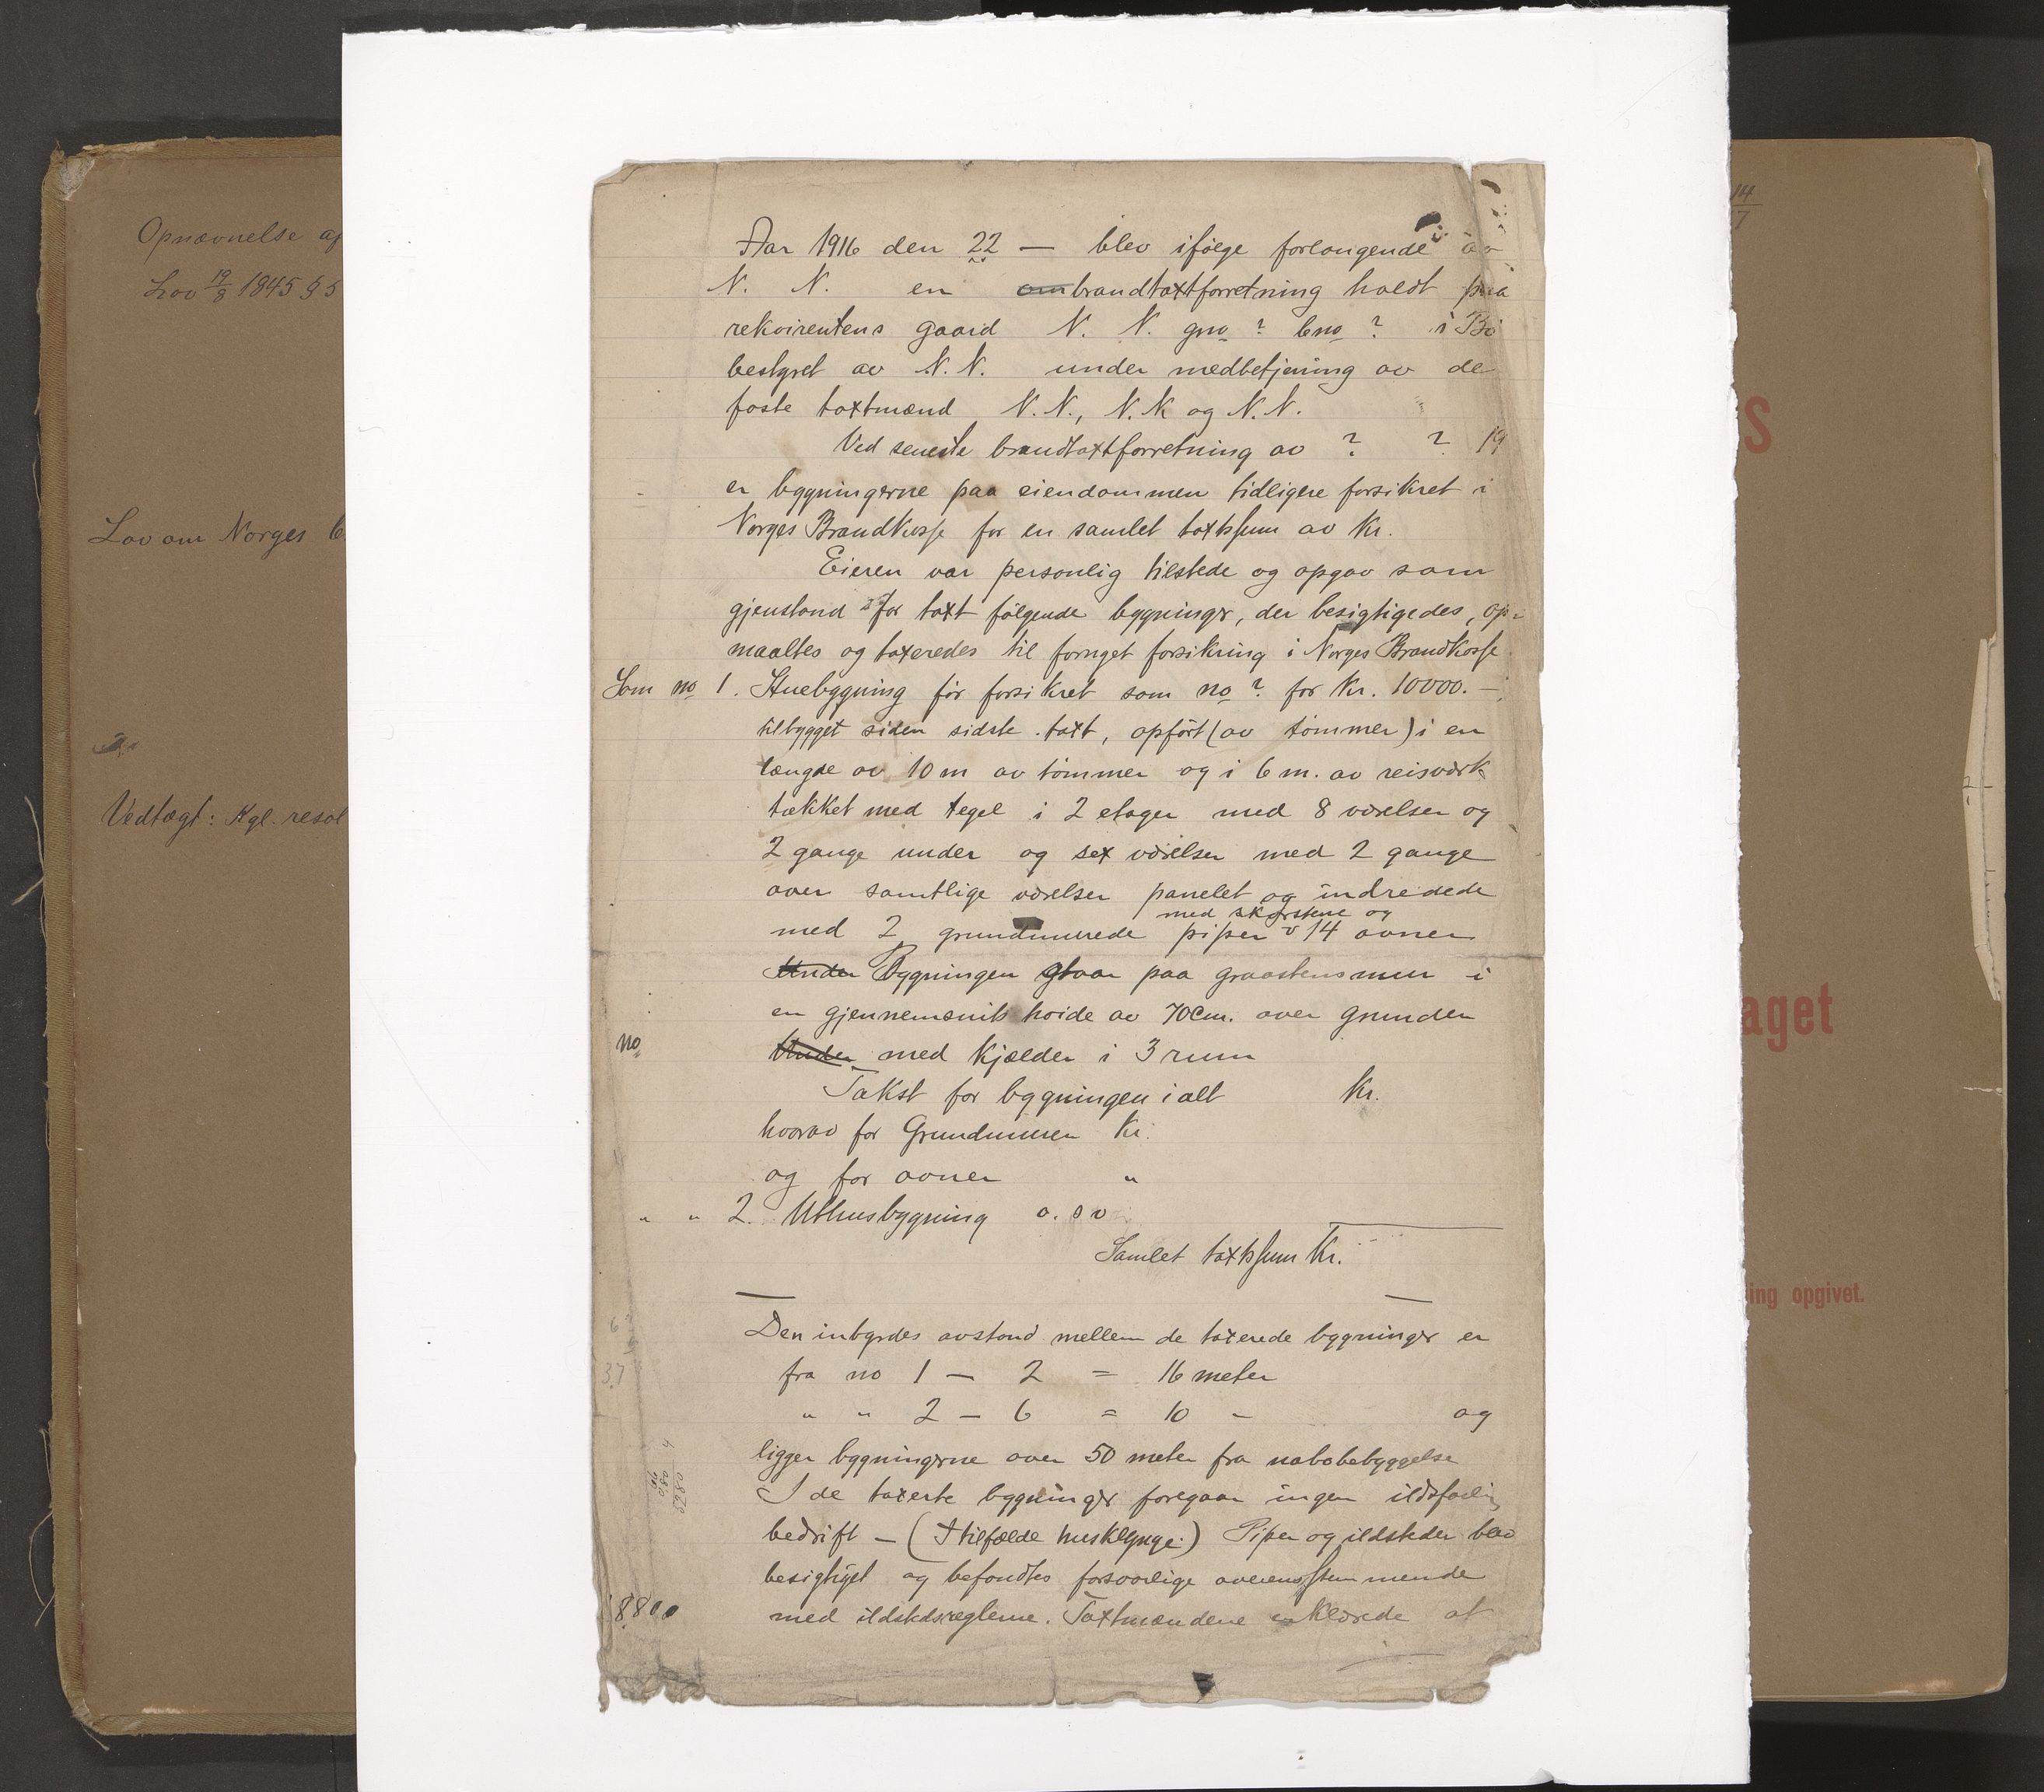 Opnævnelse af
Lov 19/8 1845 § 5
Lov om Norges b
Vedtægt: Kgl. resol
Aar 1916 den 22 — blev ifölge forlangende av
N. N. en om brandtaxtforretning holdt paa
rekvirentens gaard N. N. gno ? bno ? i Bö
bestyret av N. N. under medbetjening av de
faste taxtmænd N. N., N. N og N. N.
Ved seneste brandtaxtforretning av ? ? 19
er bygningerne paa eiendommen tidligere forsikret i
Norges Brandkasse for en samlet taxtssum av Kr.
Eieren var personlig tilstede og opgav som
gjenstand for taxt fölgende bygninger, der besigtigedes, op-
maaltes og taxeredes til fornyet forsikring i Norges Brandkasse
Som no 1. Stuebygning för forsikret som no ? for Kr. 10000. —
tilbygget siden sidste taxt, opfört (av tömmer) i en
længde av 10 m av tömmer og i 6 m. av reisværk
tækket med tegel i 2 etager med 8 værelser og
2 gange under og sex værelser med 2 gange
over samtlige værelser panelet og indredede
med skorstene og
med 2 grundmurede piper v 14 ovner
Under Bygningen staar paa graastensmur i
en gjennemsnits höide av 70 cm. over grunden
no
Under med kjælder i 3 rum
Takst for bygningen ialt Kr.
hvorav for Grundmuren Kr.
og for ovner "
" " 2. Uthusbygning o. s v
Samlet taxtssum Kr.
Den inbyrdes avstand mellem de taxerede bygninger er
fra no 1 — 2 = 16 meter
37
" " 2 — 6 = 10 - og
ligger bygningerne over 50 meter fra nabobebyggelse
5280
I de taxerte bygninger foregaar ingen ildsfarlig
bedrift — (I tilfælde husklynge.) Piper og ildsteder blev
besigtiget og befandtes forsvarlige overensstemmende
8800
med ildstedsreglerne. Taxtmændene erklærede at
14
7
S
aget
ing opgivet.